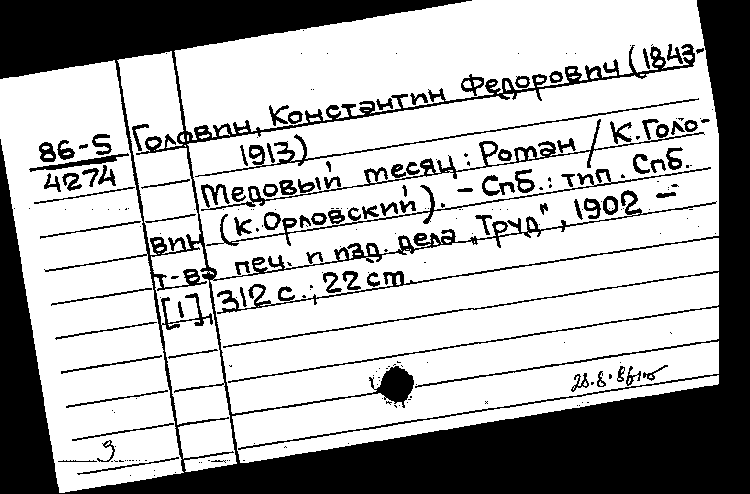 86-5
4274
Головин, Константин Федорович (1843-
1913)
Медовый месяц : Роман / К. Голо-
вин (К. Орловский). - Спб. : тип. Спб.
т-ва печ. и изд. дела „Труд", 1902 -
[1], 312 с.; 22 cm.
28.8.86
9